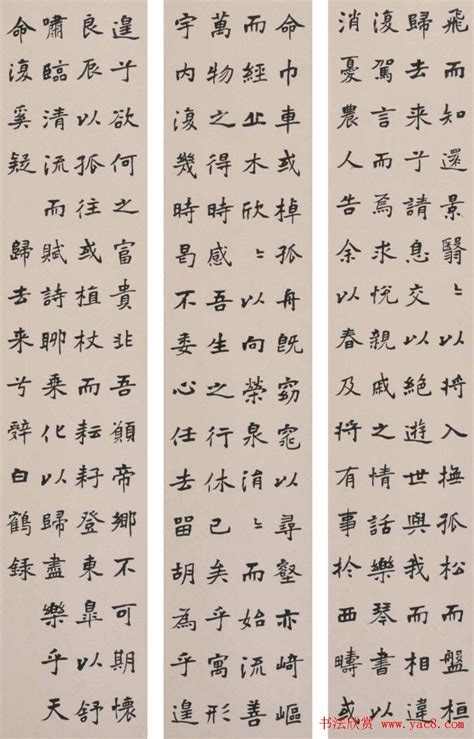 飛而知還景翳〻以將入撫孤松而盤桓
歸去来兮請息交以絕遊世與我而相違
復駕言而焉求悅親戚之情話樂琴書以
消憂農人告余以春及將有事扵西疇或
命巾車或棹孤舟既窈窕以尋壑亦崎嶇
而經止木欣〻以向榮泉涓〻而始流善
萬物之得時感吾生之行休已矣乎寓形
宇内復幾時曷不委心任去留胡為乎遑
遑兮欲何之富貴非吾願帝鄉不可期懷
良辰以孤往或植杖而耘耔登東皋以舒
嘯臨清流而賦詩聊乘化以歸盡樂乎天
命復奚疑 歸去来兮辭白鶴録
书法欣赏 www.yac8.com